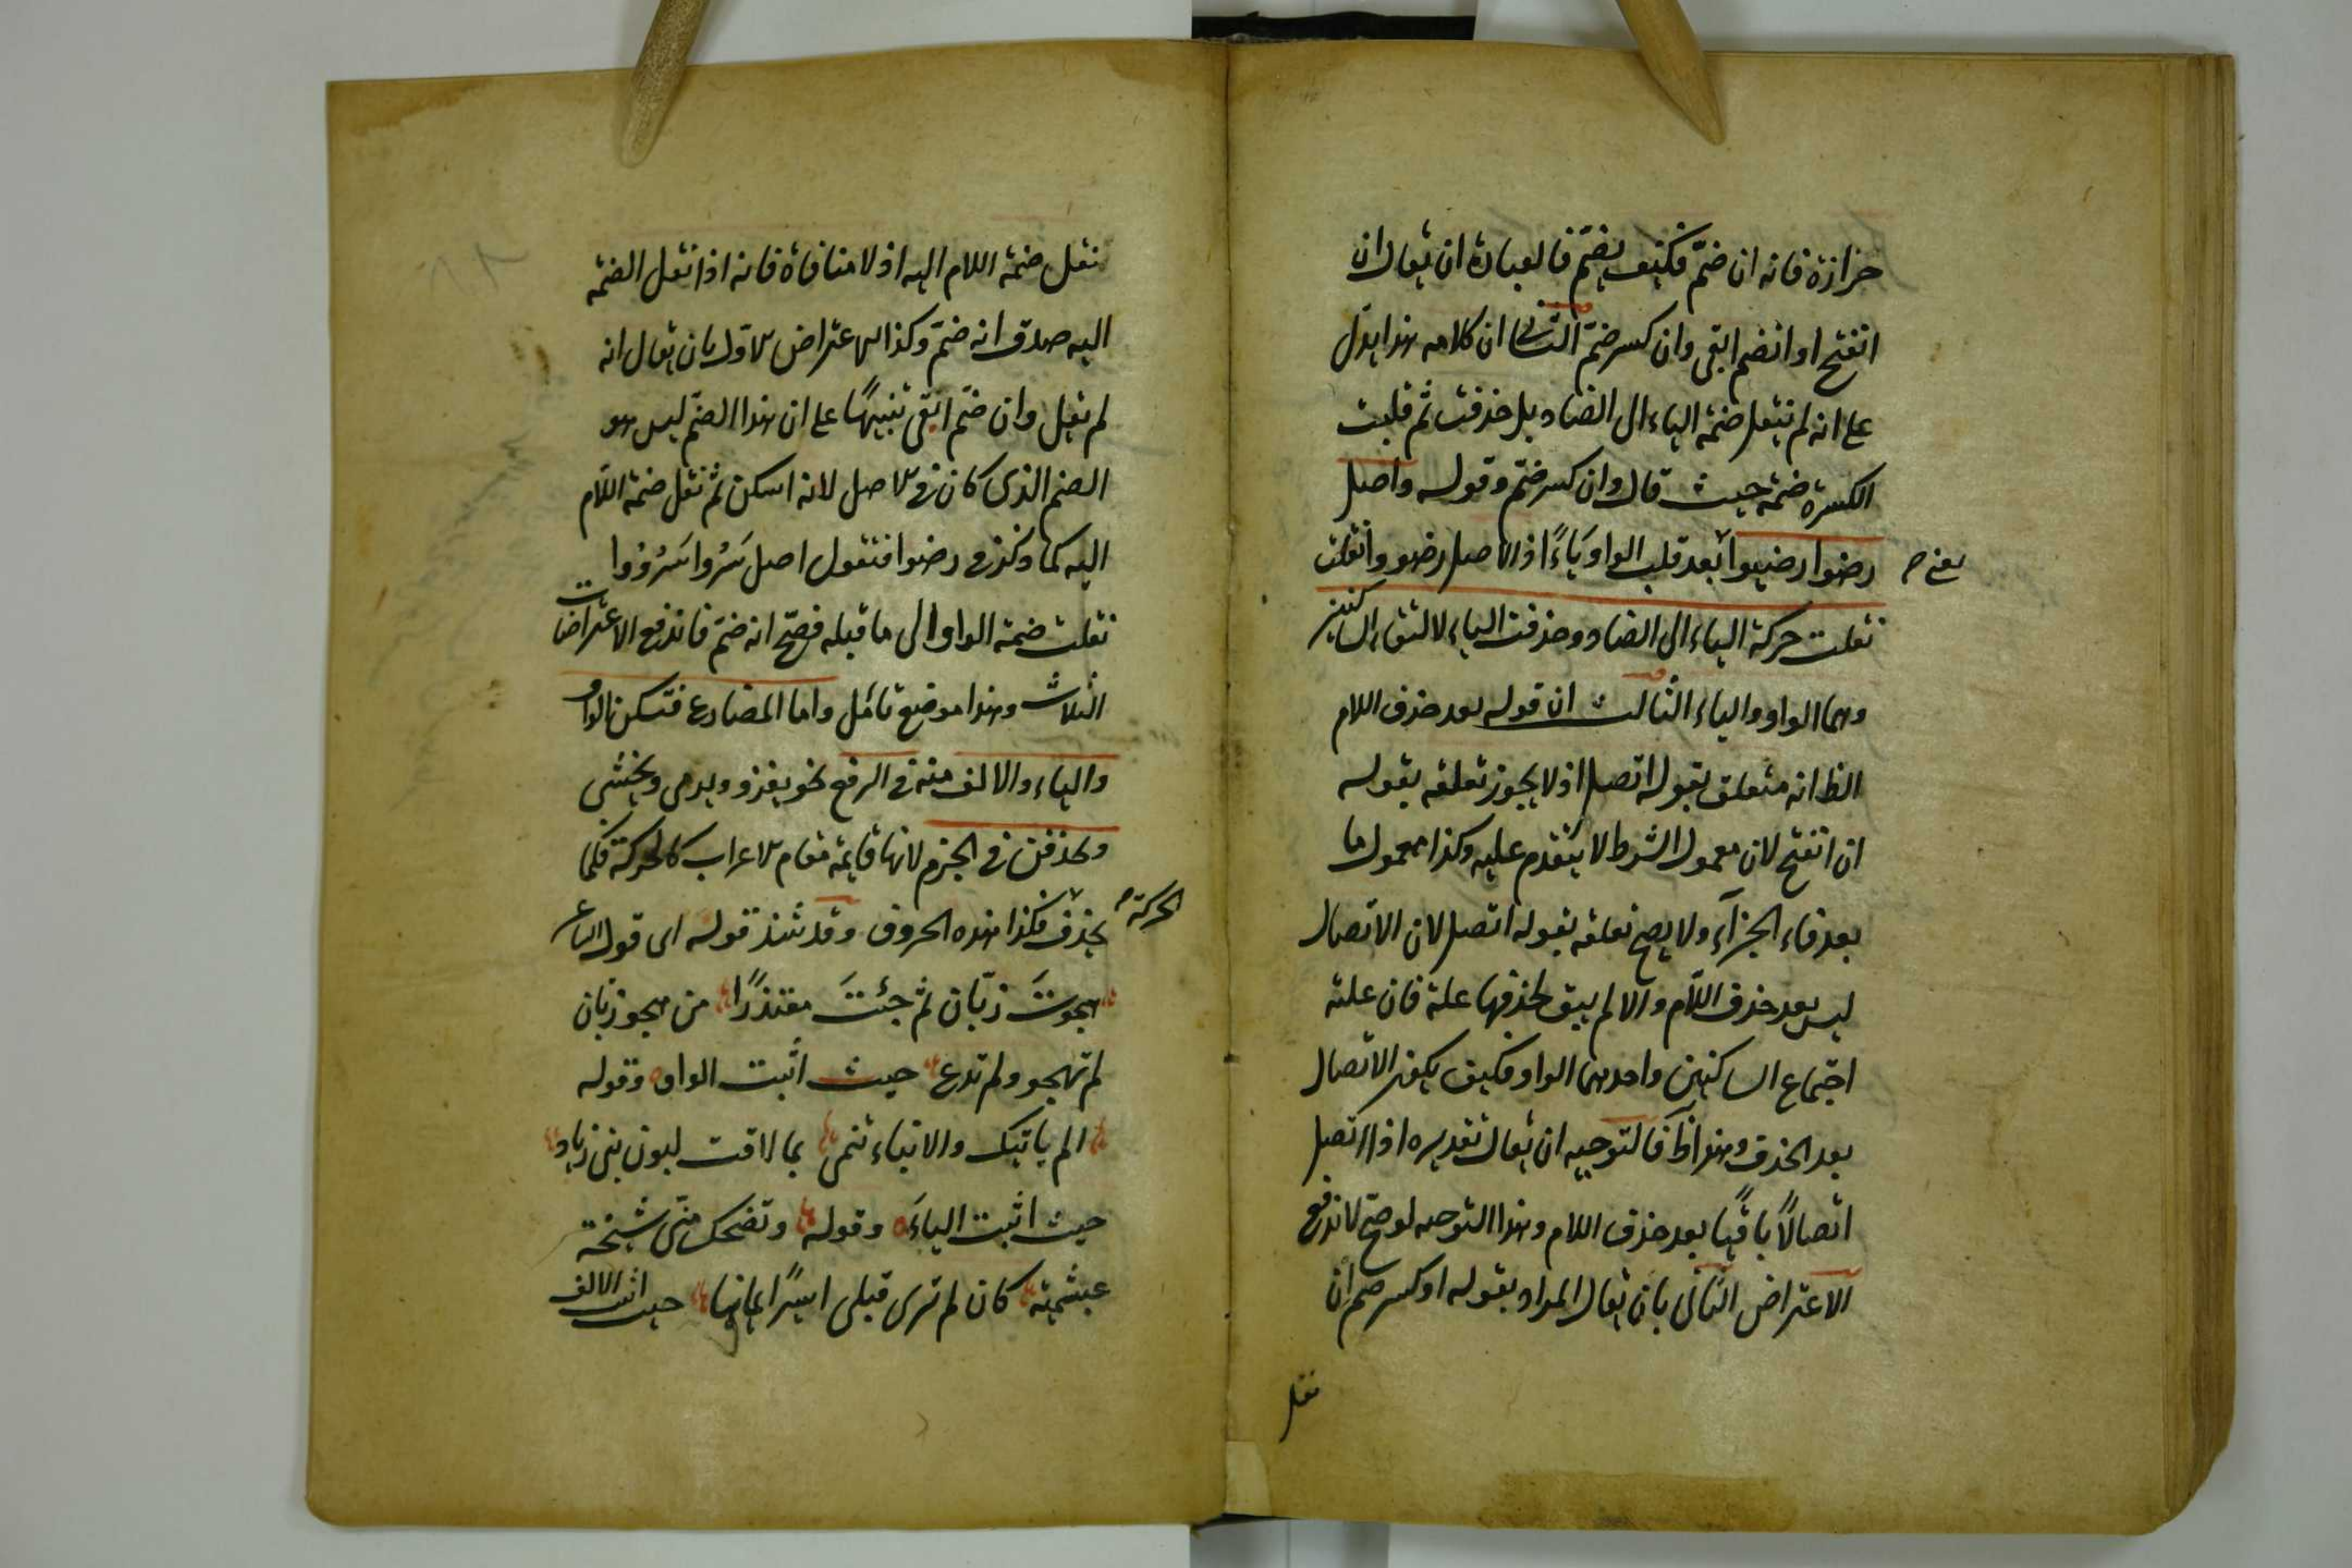 حزازة فانه ان ضمّ فكيف يضمّ فالعبارة ان يقال ان
انفتح او انضم ابقى وان كسر ضمّ الثانى ان كلامه هذا يدلّ
على انه لم ينقل ضمة الياء الى الضاد بل حذفت ثم قلبت
الكسرة ضمة حيث قال وان كسر ضمّ وقوله واصل
رضوا رضيوا بعد قلب الواو ياءً اذ الاصل رضووا نقلت
يعنى
نقلت حركة الياء الى الضاد وحذفت الياء لالتقاء الساكنين
وهما الواو والياء الثالث ان قوله بعد حذف اللام
الظ انه متعلق بقوله اتصل اذ لا يجوز تعلقه بقوله
ان انفتح لان معمول الشرط لا يتقدم عليه وكذا معمول ما
بعد فاء الجزآء ولا يصح تعلقه بقوله اتصل لان الاتصال
ليس بعد حذف اللّام والا لم يبق لحذفها علة فان علته
اجتماع الساكنين واحدهما الواو فكيف يكون الاتصال
بعد الحذف وهذا ظ فالتوجيه ان يقال تقديره اذا اتصل
اتصالًا باقيًا بعد حذف اللام وهذا التوجيه لو صحّ لاندفع
الاعتراض الثانى بان يقال المراد بقوله او كسر ضم ان
نقل
نقل ضمة اللام اليه اذ لا منافاة فانه اذا نقل الضمة
اليه صدق انه ضمّ وكذا الاعتراض الاول بان يقال انه
لم يقل وان ضمّ ابقى تنبيهًا على ان هذا الضمّ ليس هو
الضم الذى كان فى الاصل لانه اسكن ثم نقل ضمة اللّام
اليه كما ذكر فى رضوا فنقول اصل سَرُوا سَرُووا
نقلت ضمة الواو الى ما قبله فصحّ انه ضمّ فاندفع الاعتراضات
الثلاث وهذا موضع تامّل واما المضارع فتسكن الواو
والياء والالف منه فى الرفع نحو يغزو ويرمى ويخشى
وتحذفن فى الجزم لانها قايمة مقام الاعراب كالحركة فكما
الحركة
يحذف فكذا هذه الحروف وقد شذ قوله اى قول الشاعر
هجوتَ زبّان ثم جئتَ معتذرًا من هجو زبّان
لم تهجو ولم تدع حيث اثبت الواو وقوله
الم ياتيك والانباء تنمى بما لاقت لبون بنى زياد
حيث اثبت الياءَ وقوله وتضحك منّى شيخة
عبشمية كان لم ترى قبلى اسيرًا يمانيا حيث اثبت الالف